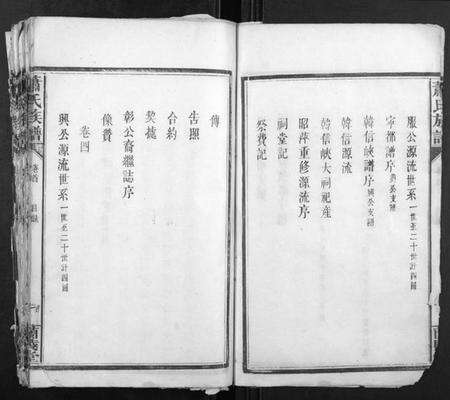 蕭氏族譜
服公源流世系一世至二十世計四圖
寧都譜序
韓信峽譜序興公支譜
韓信源流
韓信峽大祠祀產
昭萍重修源流序
祠堂記
祭費記
傳
告照
合約
契據
彰公裔繼誌序
像贊
卷四
興公源流世系一世至二十世計四圖
蕭氏族譜
卷首
目錄